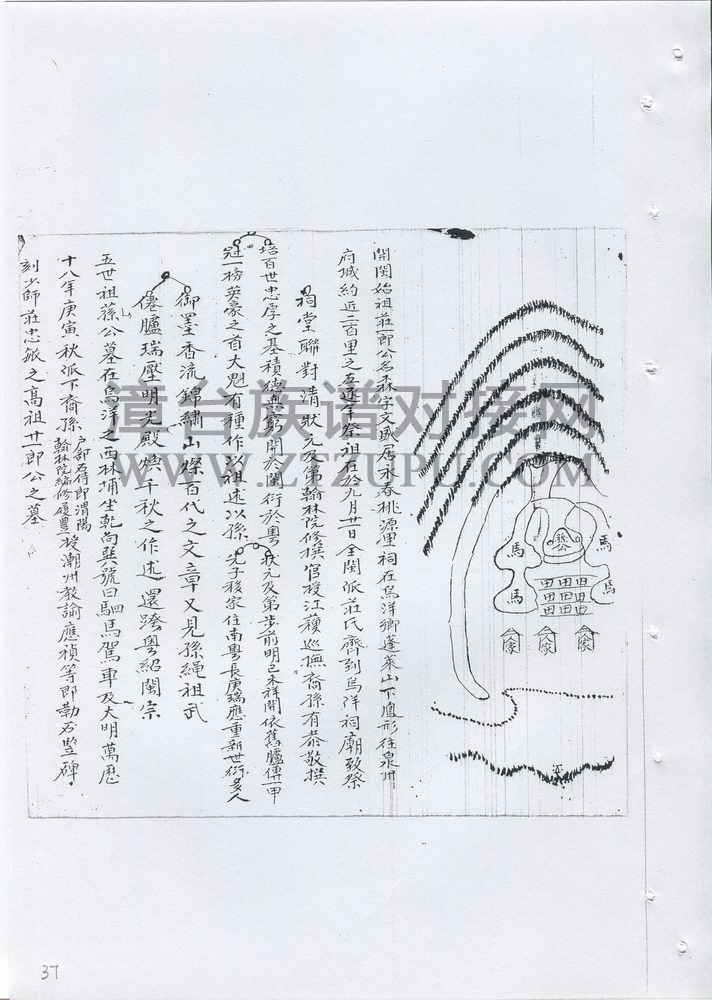 馬
馬
馬
馬
蓀公
田田田
田田田
田田田
開閩始祖莊一郎公名森字文盛居永春桃源里祠在烏洋鄉蓬萊山下鳳形往泉州
府城約近二百里之左逐年祭祖在於九月廿日全閩派莊氏齊到烏洋祠廟致祭
祠堂聯對清狀元及第翰林院修撰官授江穫巡撫裔孫有恭敬撰
培百世忠厚之基積德無窮開於閩衍於粵狀元及第步前明己未祥開依舊臚傳一甲
冠一榜英豪之首大魁有種作以祖述以孫先子移家住南粵長庚瑞應重新世衍多人
御墨香流錦繡山燦百代之文章又見孫繩祖武
僊臚瑞壓明光殿煥千秋之作述還跨粵紹閩宗
五世祖蓀公墓在烏洋之西林埔坐乾向巽號曰駟馬駕車及大明萬曆
十八年庚寅秋派下裔孫戶部右侍郎渭陽翰林院編修履豐授潮州教諭應禎等即勒石豎碑
刻少師莊忠敏之高祖廿一郎公之墓
漳台族谱对接网
WWW.ZTZUPU.COM
37